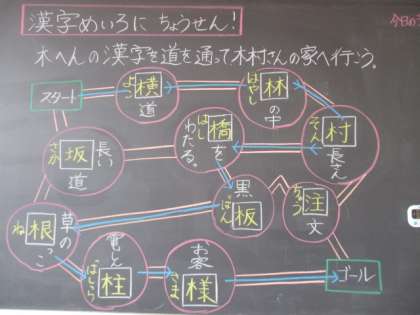 漢字めいろに ちょうせん!
木へんの漢字を道を通って木村さんの家へ行こう。
スタート
よこ
横
道
はやし
林
の中
そん
村
長さん
はし
橋
を
わたる。
さか
坂
長い
道
黒
ばん
板
ちゅう
注
文
ね
根
草の
っこ
電しん
ばしら
柱
お客
さま
様
ゴール